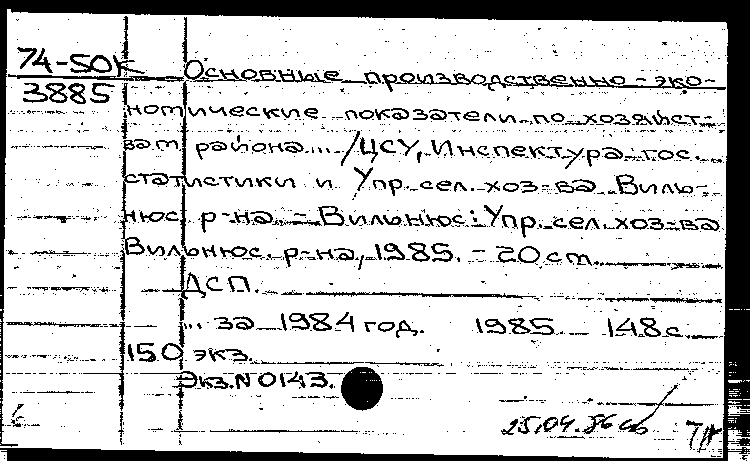 74-50К
3885
Основные производственно-эко-
номические показатели по хозяйст-
вам района... /ЦСУ, Инспектура гос.
статистики и Упр. сел. хоз-ва Виль-
нюс. р-на. - Вильнюс: Упр. сел. хоз-ва
Вильнюс. р-на, 1985. - 20 см.
ДСП.
... за 1984 год. 1985 148 с.
150 экз.
Экз. N 0143.
6
25.04.86